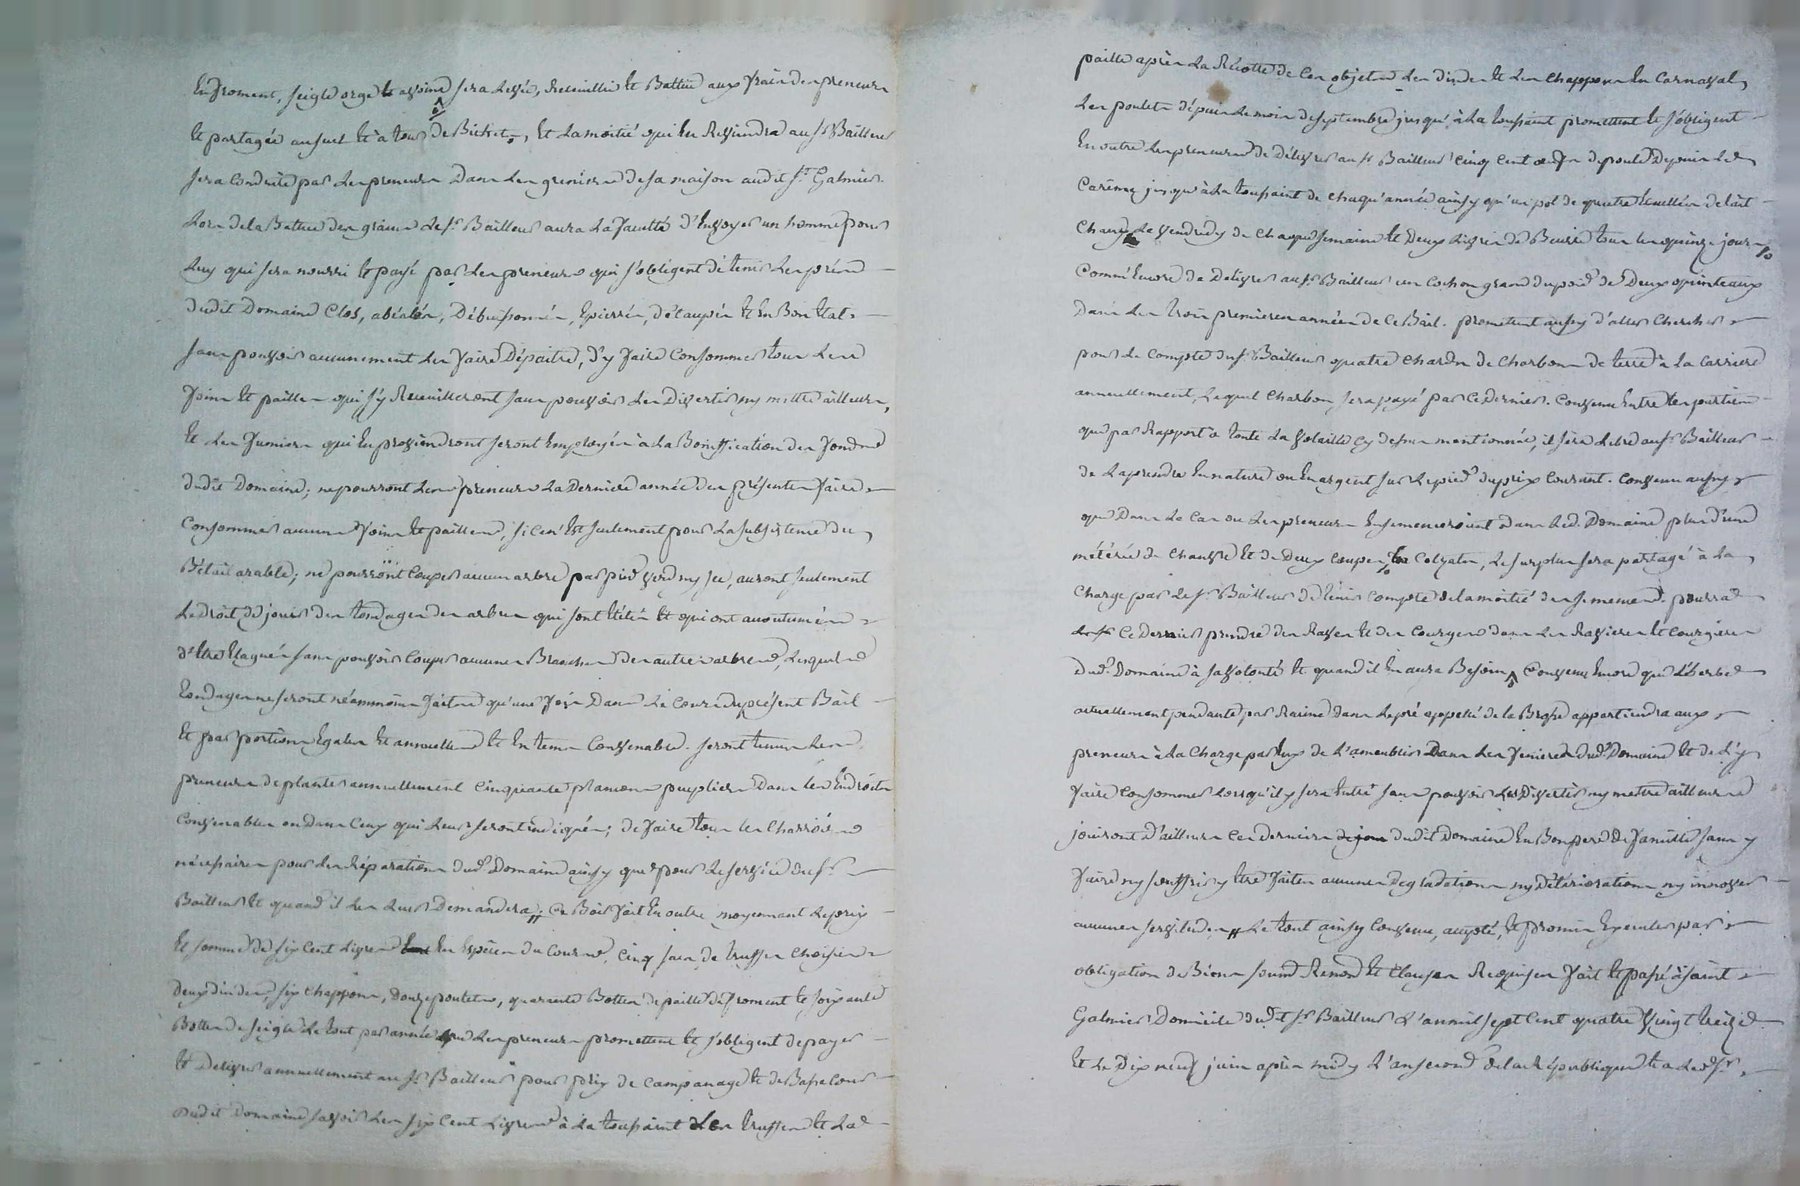 En froment, seigle orge et avoine sera levée, recueillie et Battue aux fraix des preneurs
Et partagée au seul et à tour de Bichet, Et la moitié qui en Reviendra au Sr Bailleur
sera conduitte par les preneurs Dans les greniers de sa maison audit St Galmier.
Lors de la Battue des grains le Sr Bailleur aura la faculté d'Envoyer un homme pour
luy qui sera nourri et payé par les preneurs qui s'obligent de tenir les préds
dudit Domaine Clos, abéalés, Débuissonnés, Epierrés, détaupés Et En Bon Etat
sans pouvoir aucunement les faire Dépaitre, d'y faire Consommer tous les
foins Et pailles qui s'y Recuëilleront sans pouvoir les Divertir ny mettre ailleurs,
Et les fumiers qui En proviendront seront Employés à la Boniffication des fonds
dudit Domaine; ne pourront les preneurs la Derniere année des présentes faire
Consommer aucuns foins Et pailles, si ce n'Est seulement pour la subsistence du
Bétail arable; ne pourront Couper aucun arbre par pied verd ny sec, auront seulement
Le droit de jouir des tondages des arbres qui sont Etétés Et qui ont accoutumés
d'être Elagués sans pouvoir Couper aucunes Branches des autres arbres, lesquels
tondages ne seront néanmoins faits qu'une fois Dans le Cours du présent Bail
Et par portions Egales Et annuelles Et En tems Convenable. seront tenus les
preneurs de planter annuellement Cinquante plançons peupliers Dans les Endroits
Convenables ou Dans Ceux qui leur seront indiqués; de faire tous les Charrois
nécessaires pour les Réparations dud. Domaine ainsy que pour le service du Sr
Bailleur Et quand il les leur Demandera; Ce Bail fait En outre moyennant le prix
Et somme de six Cent livres En Espèces du Cours, Cinq sacs de truffes Choisies
deux dindes, six Chappons, douze poulets, quarante Bottes de paille de froment Et soixante
Bottes de seigle le tout par année que les preneurs promettent Et s'obligent de payer
Et Delivrer annuellement au Sr Bailleur pour prix de Campanage Et de Basse Cour
dudit Domaine savoir les six Cent livres à la toussaint les truffes Et la
paille après la Récolte de Ces objets les dindes Et les Chappons En Carnaval,
les poulets dépuis le mois de septembre jusqu'à la toussaint promettent Et s'obligent
En outre les preneurs de Délivrer au Sr Bailleur Cinq Cent œufs de poule Depuis le
Carême jusqu'à la toussaint de chaqu'année ainsy qu'un pot de quatre écuellées de lait
Chaud le vendredy de chaque semaine Et Deux livres de Beurre tous les quinze jours
Comm'Encore de Delivrer au Sr Bailleur un Cochon grand du poid de Deux quinteaux
Dans les trois premieres années de Ce Bail. promettent aussy d'aller Chercher
pour le Compte du Sr Bailleur quatre Chards de Charbon de terre à la Carriere
annuellement, lequel Charbon sera payé par Ce Dernier. Convenu Entre les parties
que par Rapport à toute la volaille Cy dessus mentionnée, il sera libre au Sr Bailleur
de la prendre En nature ou En argent sur le pied du prix Courant. Convenu aussy
que Dans le Cas ou les preneurs Ensemenceroient Dans led. Domaine plus d'une
méterée de Chanvre Et de Deux Coupes Colzates, le surplus sera partagé à la
Charge par le Sr Bailleur de tenir Compte de la moitié des semences. pourra
Ce Dernier prendre des Raves Et des Courges dans les Ravieres Et Courgieres
Dud. Domaine à sa volonté Et quand il En aura Besoin, Convenu Encore que l'herbe
actuellement pendante par Racine Dans le pré appellé de la Broße appartiendra aux
preneurs à la Charge par Eux de l'ameublir Dans les fenieres dud. Domaine Et de l'y
faire Consommer lorsqu'il y sera Entré sans pouvoir les Divertir ny mettre ailleurs
jouiront D'ailleurs Ces derniers dudit Domaine En Bon pere de famille sans y
faire ny souffrir y être faites aucunes Degradations ny Détériorations ny innover
aucunes servitudes; Le tout ainsy Convenu, accepté, Et promis Executer par
obligation de Biens soumis Renonc Et Clauses Requises fait Et passé à saint
Galmier Domicile dudt Sr Bailleur L'an mil sept Cent quatre Vingt treize
Et le Dix neuf juin après midy L'an second de la République Et a led. Sr